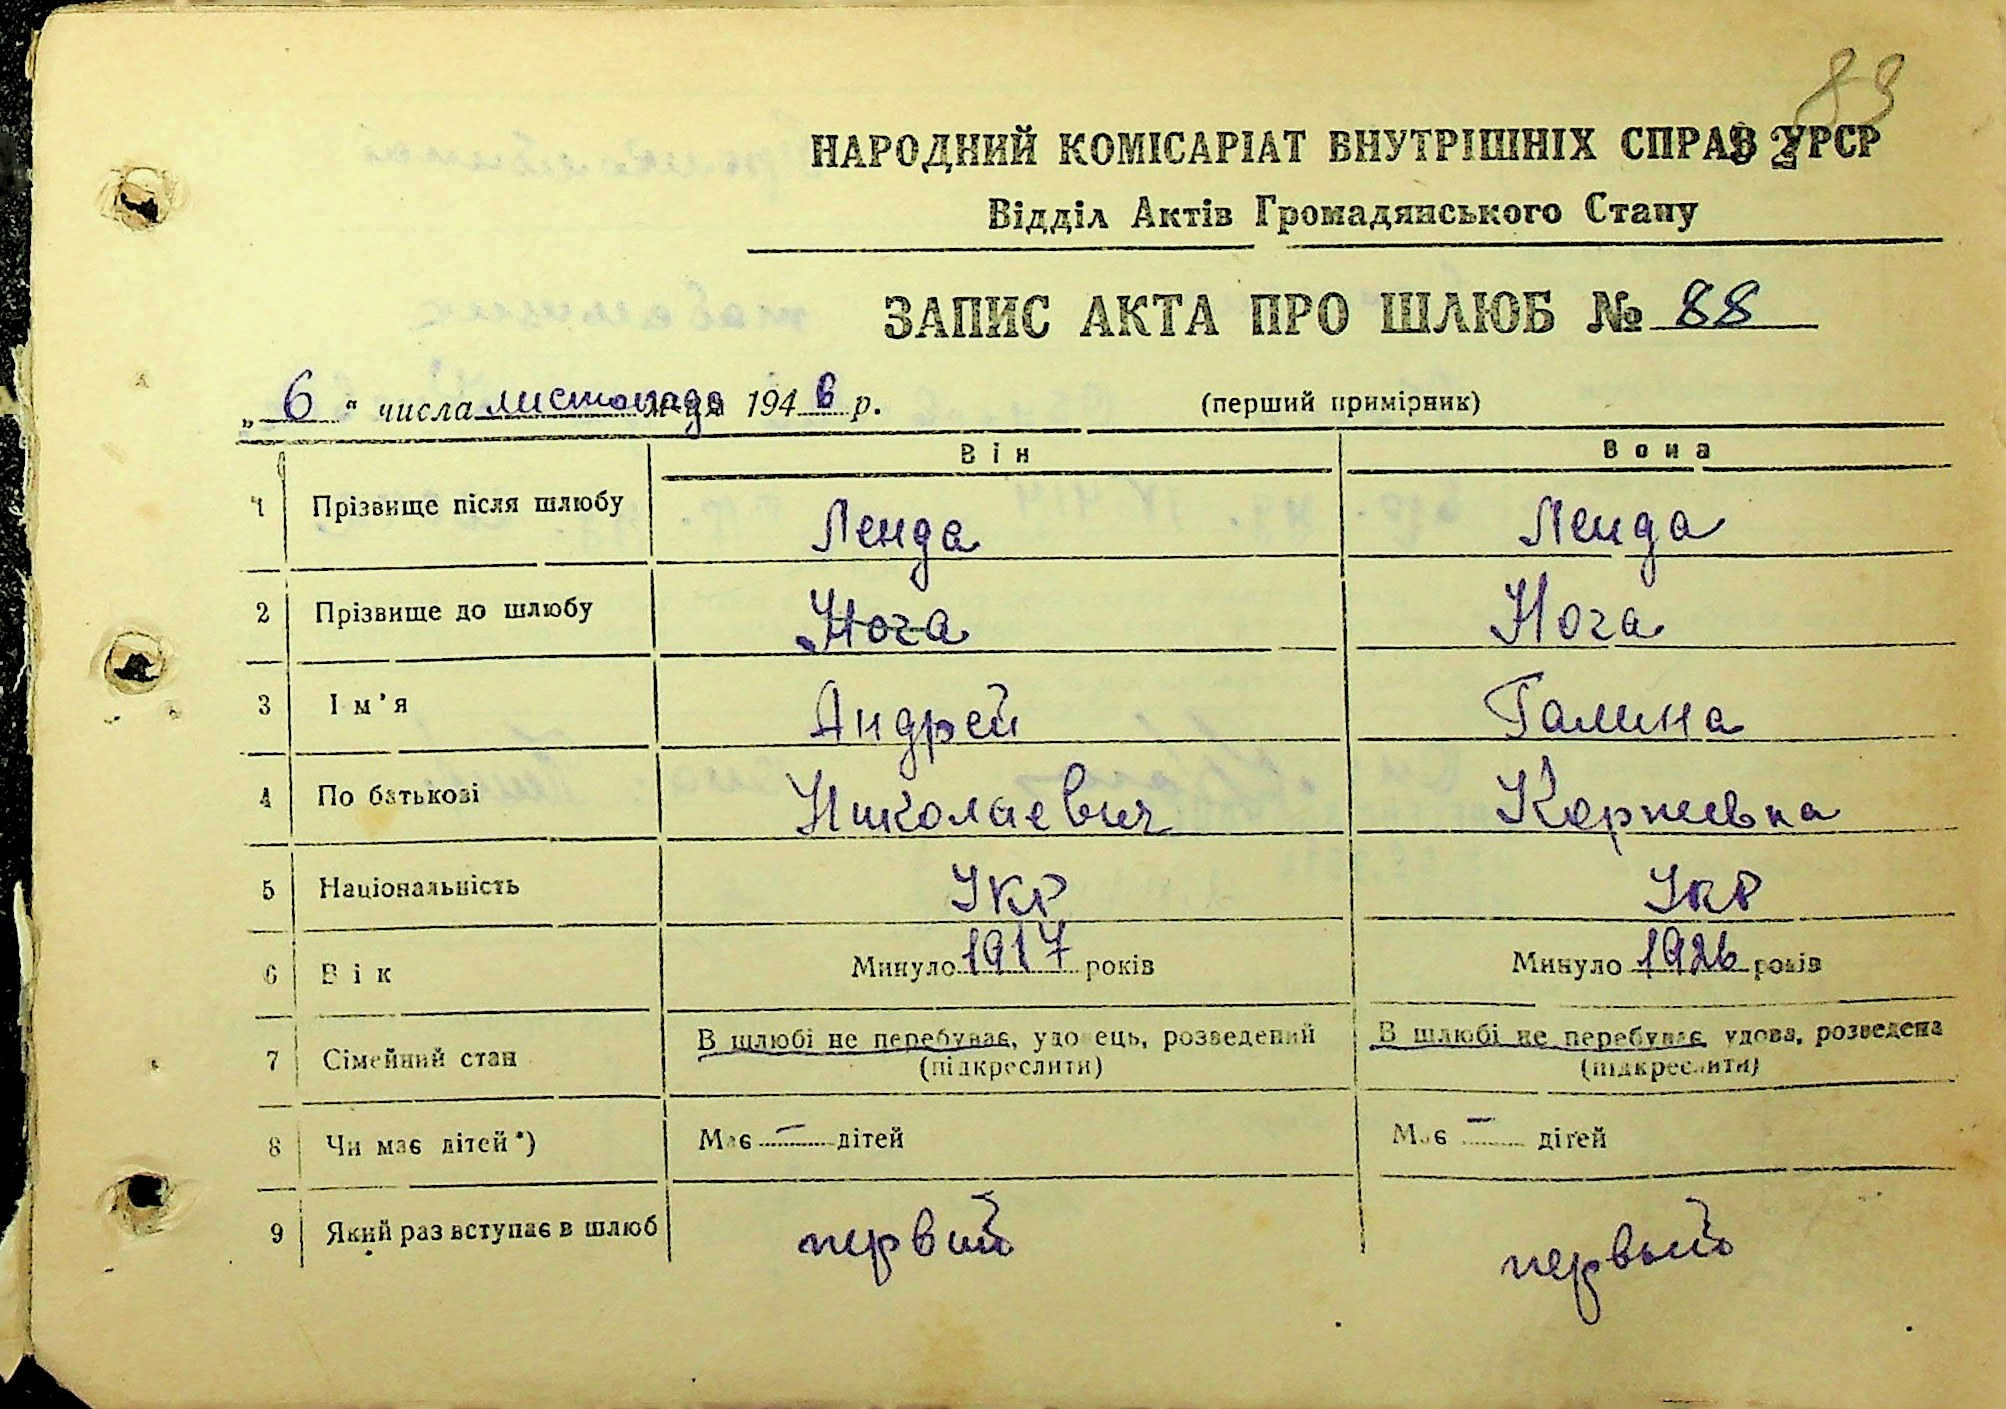 83
НАРОДНИЙ КОМІСАРІАТ ВНУТРІШНІХ СПРАВ УРСР
82
Відділ Актів Громадянського Стану
ЗАПИС АКТА ПРО ШЛЮБ № 88
„ 6 “ числа листопада 194 6 р. (перший примірник)
Він Вона
1 Прізвище після шлюбу Ленда Ленда
2 Прізвище до шлюбу Нога Нога
3 Ім’я Андрей Галина
4 По батькові Николаевич Корнеевна
5 Національність Укр Укр
6 Вік Минуло 1917 років Минуло 1926 років
7 Сімейний стан В шлюбі не перебуває, удовець, розведений В шлюбі не перебуває, удова, розведена
(підкреслити) (підкреслити)
8 Чи має дітей*) Має – дітей Має – дітей
9 Який раз вступає в шлюб первий первый